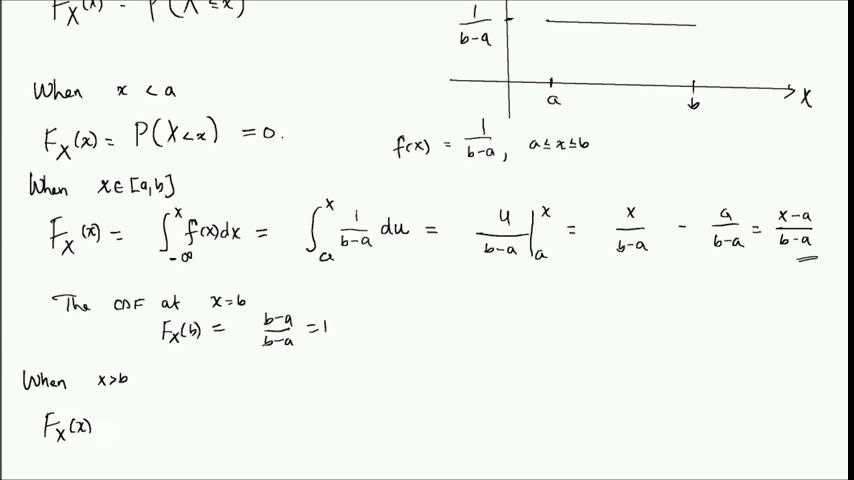 F_X(x) = P(X ≤ x)
1/(b-a)
a b X
When x < a
F_X(x) = P(X<x) = 0.
f(x) = 1/(b-a), a ≤ x ≤ b
When x ∈ [a,b]
F_X(x) = ∫_{-∞}^{x} f(x)dx = ∫_{a}^{x} 1/(b-a) du = u/(b-a) |_{a}^{x} = x/(b-a) - a/(b-a) = (x-a)/(b-a)
The CDF at x=b
F_X(b) = (b-a)/(b-a) = 1
When x>b
F_X(x)